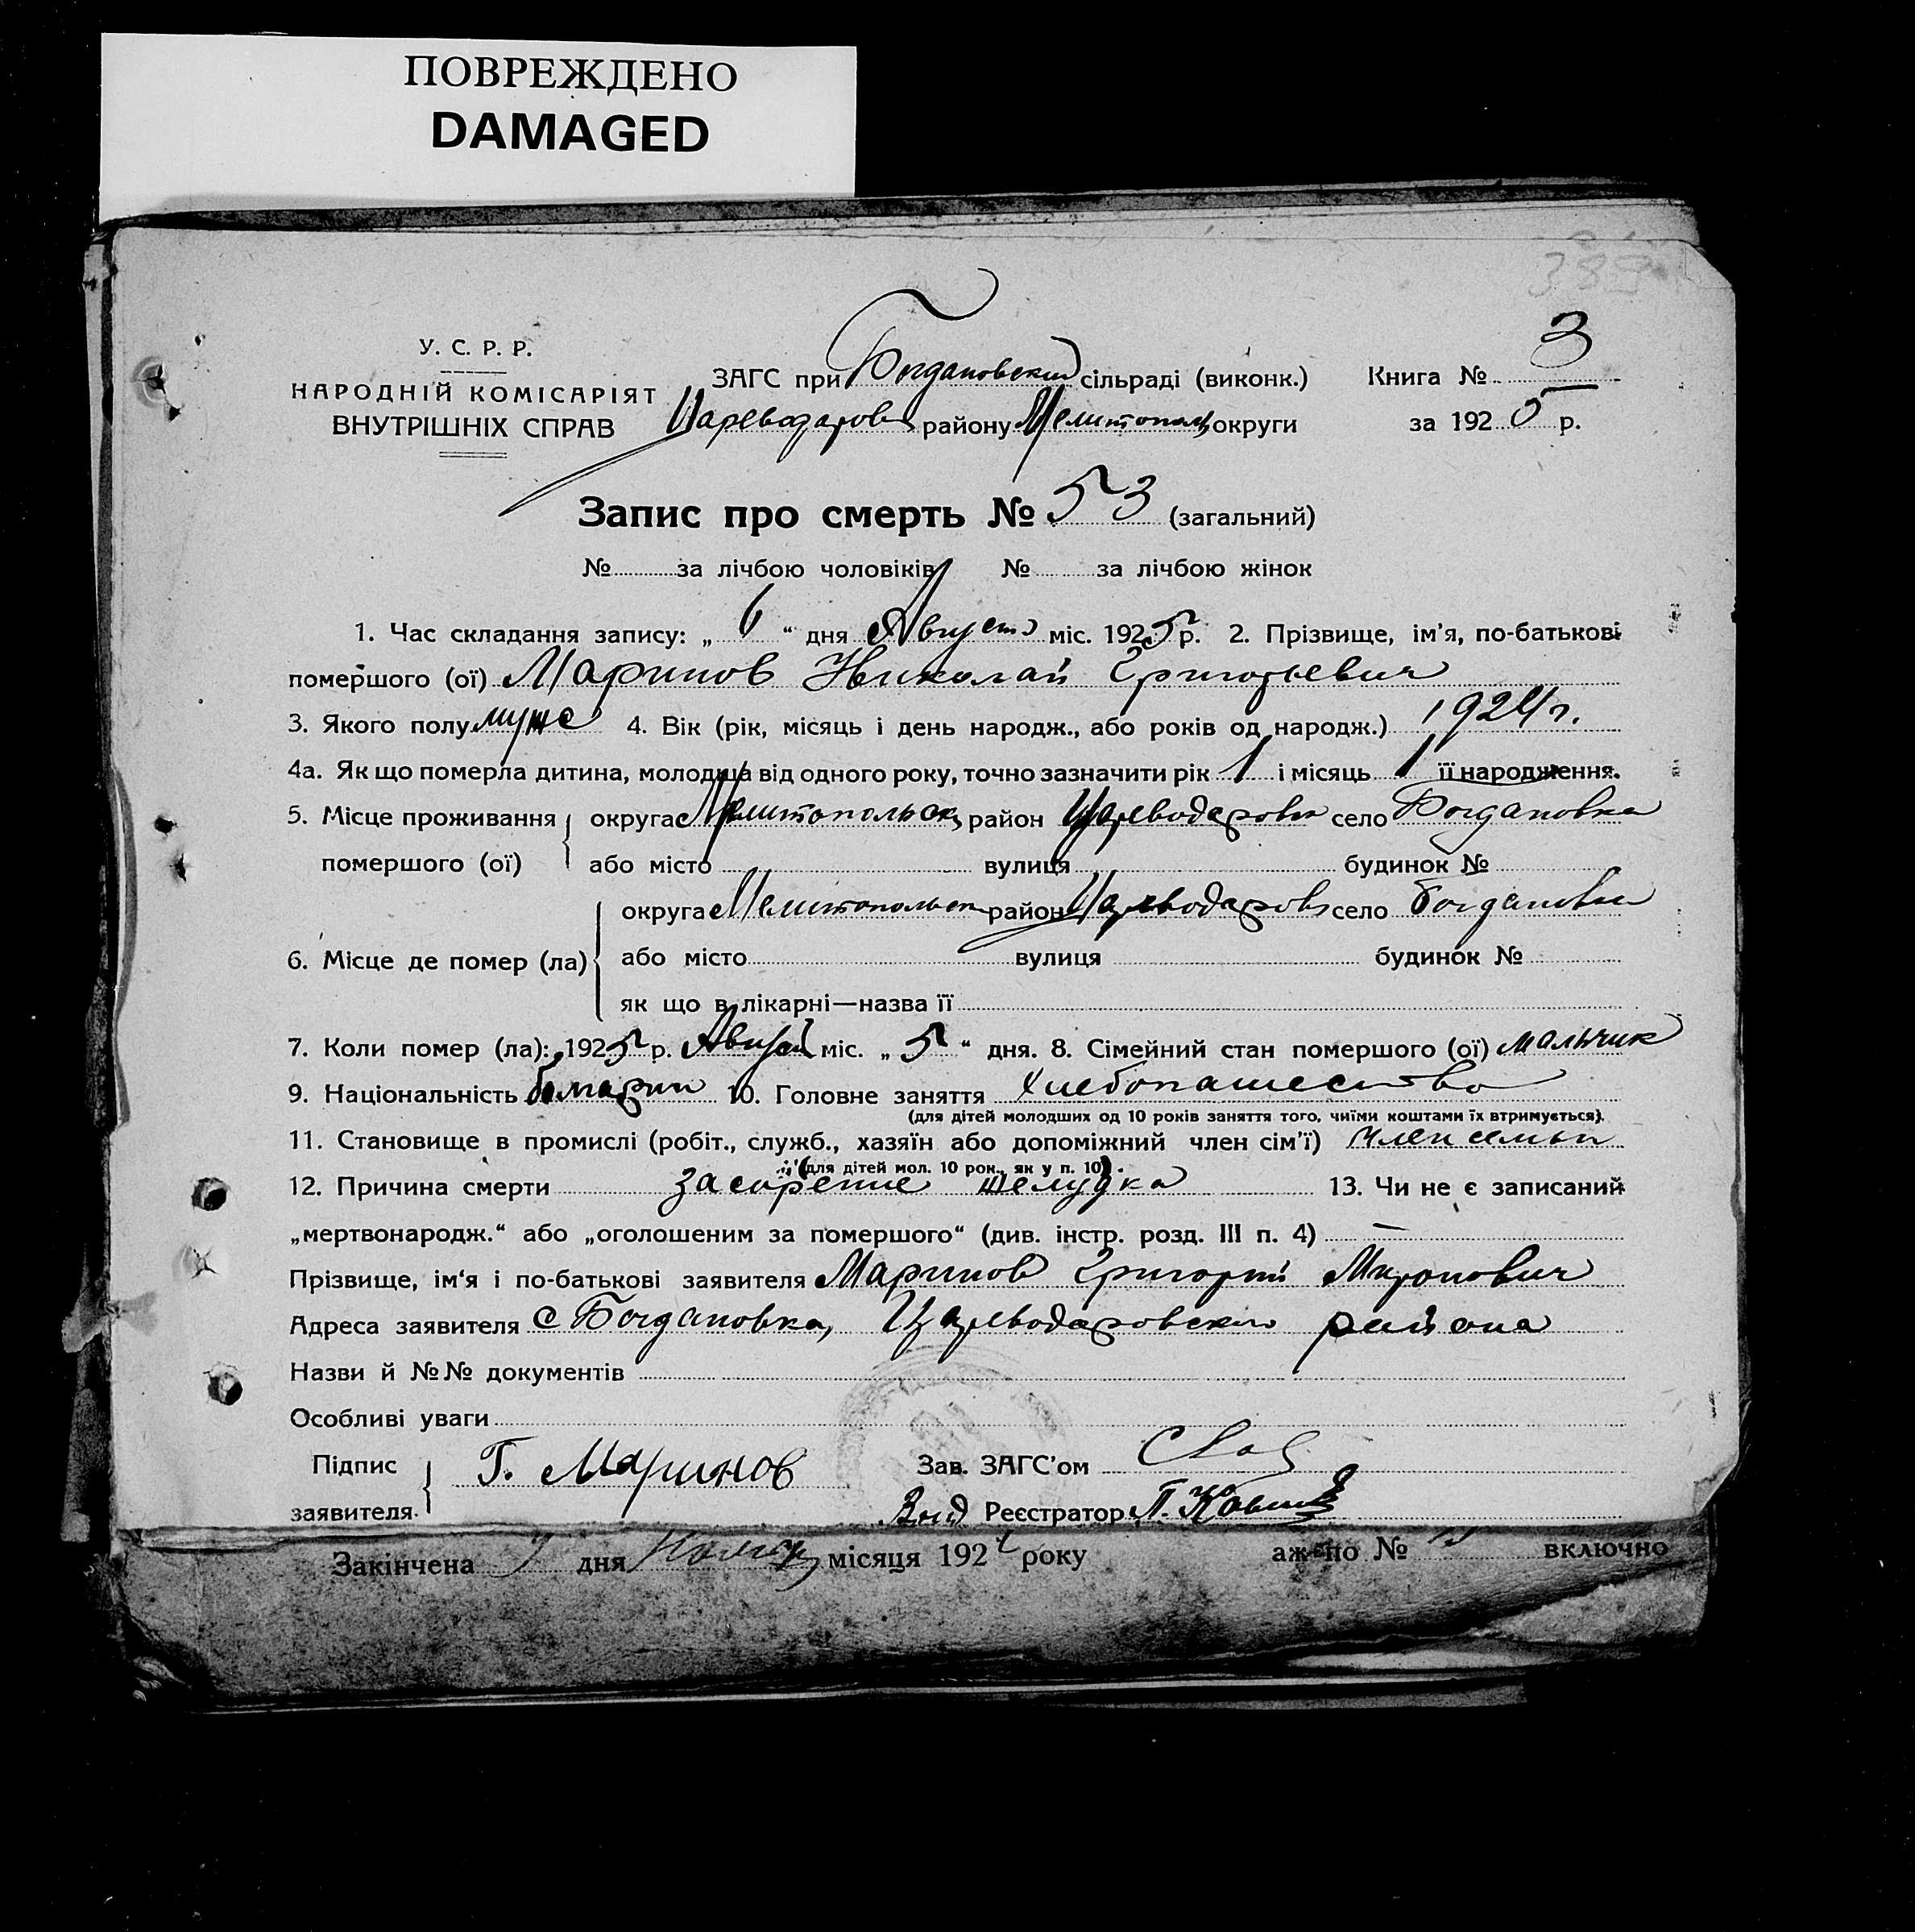 ПОВРЕЖДЕНО
DAMAGED
У. С. Р. Р.
НАРОДНІЙ КОМІСАРІЯТ
ВНУТРІШНІХ СПРАВ
ЗАГС при Богдановской сільраді (виконк.)
Цареводаров району Мелитопол округи
Книга № 3
за 1925 р.
Запис про смерть № 53 (загальний)
№ за лічбою чоловіків № за лічбою жінок
1. Час складання запису: „ 6 “ дня Августа міс. 1925 р. 2. Прізвище, ім’я, по-батькові
помершого (ої) Маринов Николай Григорьевич
3. Якого полу муж 4. Вік (рік, місяць і день народж., або років од народж.) 1924 г.
4а. Як що померла дитина, молодша від одного року, точно зазначити рік 1 і місяць 1 її народження.
5. Місце проживання округа Мелитопольск район Цареводаровк село Богдановка
помершого (ої) або місто вулиця будинок №
округа Мелитопольск район Цареводаров село Богдановка
6. Місце де помер (ла) або місто вулиця будинок №
як що в лікарні—назва її
7. Коли помер (ла): 1925 р. міс. „ 5 “ дня. 8. Сімейний стан помершого (ої) мальчик
9. Національність болгарин 10. Головне заняття хлебопашество
(для дітей молодших од 10 років заняття того, чиїми коштами їх втримується).
11. Становище в промислі (робіт., служб., хазяїн або допоміжний член сім’ї) член семьи
(для дітей мол. 10 рок., як у п. 10).
12. Причина смерти засорение желудка 13. Чи не є записаний
„мертвонародж.“ або „оголошеним за помершого“ (див. інстр. розд. III п. 4) —
Прізвище, ім‘я і по-батькові заявителя Маринов Григорий Миронович
Адреса заявителя с Богдановка, Цареводаровского района
Назви й №№ документів
Особливі уваги
Підпис заявителя Г. Маринов Зав. ЗАГС’ом
Реєстратор П.
Закінчена дня місяця 192 року аж по № включно